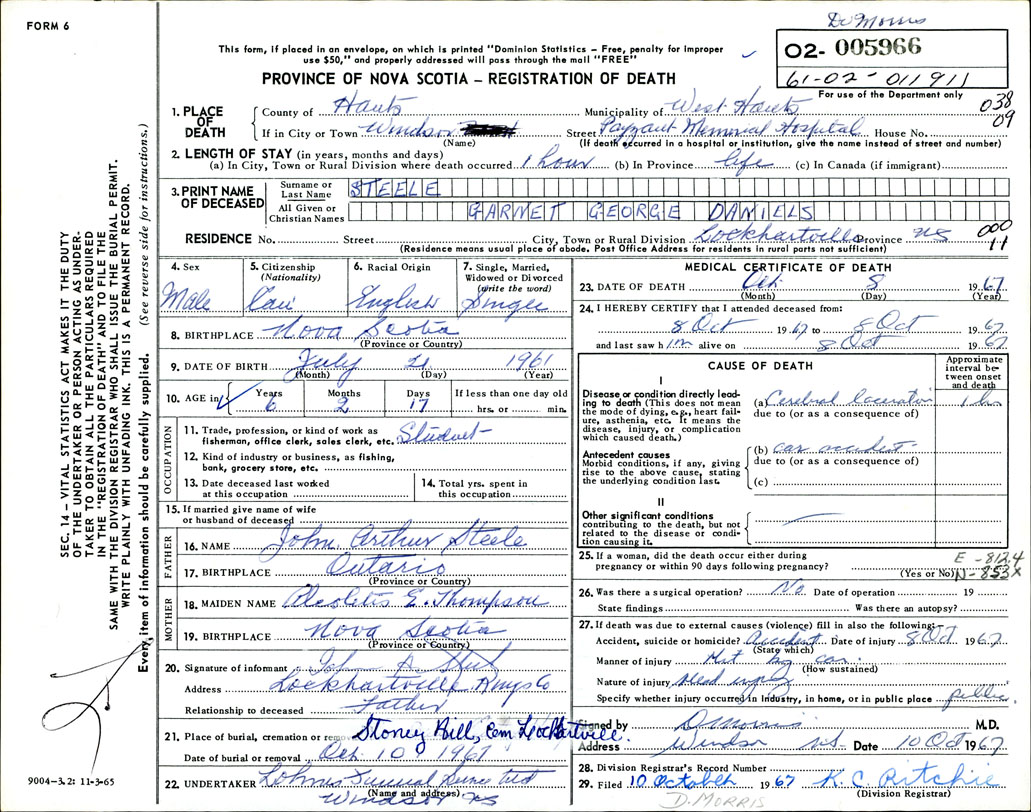 Dr Morris
FORM 6
This form, if placed in an envelope, on which is printed "Dominion Statistics – Free, penalty for improper
use $50," and properly addressed will pass through the mail "FREE"
02- 005966
61-02-011911
For use of the Department only
PROVINCE OF NOVA SCOTIA – REGISTRATION OF DEATH
038
09
1. PLACE OF DEATH
County of Hants Municipality of West Hants
If in City or Town Windsor Street Payzant Memorial Hospital House No.
(Name) (If death occurred in a hospital or institution, give the name instead of street and number)
2. LENGTH OF STAY (in years, months and days)
(a) In City, Town or Rural Division where death occurred 1 hour (b) In Province life (c) In Canada (if immigrant)
3. PRINT NAME OF DECEASED
Surname or Last Name STEELE
All Given or Christian Names GARNET GEORGE DANIELS
RESIDENCE No. Street City, Town or Rural Division Lockhartville Province NS
000
11
(Residence means usual place of abode. Post Office Address for residents in rural parts not sufficient)
4. Sex Male
5. Citizenship (Nationality) Can
6. Racial Origin English
7. Single, Married, Widowed or Divorced (write the word) Single
8. BIRTHPLACE Nova Scotia
(Province or Country)
9. DATE OF BIRTH July 21 1961
(Month) (Day) (Year)
10. AGE in Years 6 Months 2 Days 17 If less than one day old hrs. or min.
OCCUPATION
11. Trade, profession, or kind of work as fisherman, office clerk, sales clerk, etc. Student
12. Kind of industry or business, as fishing, bank, grocery store, etc.
13. Date deceased last worked at this occupation
14. Total yrs. spent in this occupation
15. If married give name of wife or husband of deceased
FATHER
16. NAME John Arthur Steele
17. BIRTHPLACE Ontario
(Province or Country)
MOTHER
18. MAIDEN NAME E. Thompson
19. BIRTHPLACE Nova Scotia
(Province or Country)
20. Signature of informant John A Steele
Address Lockhartville Kings Co
Relationship to deceased Father
21. Place of burial, cremation or removal Stoney Hill, Cem Lockhartville
Date of burial or removal Oct. 10 1967
22. UNDERTAKER Funeral Service Ltd
(Name and address) Windsor NS
MEDICAL CERTIFICATE OF DEATH
23. DATE OF DEATH Oct. 8 1967
(Month) (Day) (Year)
24. I HEREBY CERTIFY that I attended deceased from:
8 Oct 1967 to 8 Oct 1967
and last saw him alive on 8 Oct 1967
CAUSE OF DEATH
Approximate interval between onset and death
I
Disease or condition directly leading to death (This does not mean the mode of dying, e.g., heart failure, asthenia, etc. It means the disease, injury, or complication which caused death.)
(a) Cerebral laceration 1 hr
due to (or as a consequence of)
Antecedent causes
Morbid conditions, if any, giving rise to the above cause, stating the underlying condition last.
(b) car accident
due to (or as a consequence of)
(c)
II
Other significant conditions
contributing to the death, but not related to the disease or condition causing it.
25. If a woman, did the death occur either during pregnancy or within 90 days following pregnancy?
(Yes or No)
E-812.4
N-853X
26. Was there a surgical operation? No Date of operation 19
State findings Was there an autopsy?
27. If death was due to external causes (violence) fill in also the following:
Accident, suicide or homicide? Accident Date of injury 8 Oct 1967
(State which)
Manner of injury Hit by car
(How sustained)
Nature of injury Head injury
Specify whether injury occurred in Industry, in home, or in public place public
Signed by D Morris M.D.
Address Windsor NS Date 10 Oct 1967
28. Division Registrar's Record Number
29. Filed 10 October 1967 K. C. Ritchie
(Division Registrar)
D. MORRIS
SEC. 14 – VITAL STATISTICS ACT MAKES IT THE DUTY
OF THE UNDERTAKER OR PERSON ACTING AS UNDERTAKER TO OBTAIN ALL THE PARTICULARS REQUIRED
IN THE "REGISTRATION OF DEATH" AND TO FILE THE
SAME WITH THE DIVISION REGISTRAR WHO SHALL ISSUE THE BURIAL PERMIT.
WRITE PLAINLY WITH UNFADING INK. THIS IS A PERMANENT RECORD.
Every item of information should be carefully supplied. (See reverse side for instructions.)
9004-3.2: 11-3-65